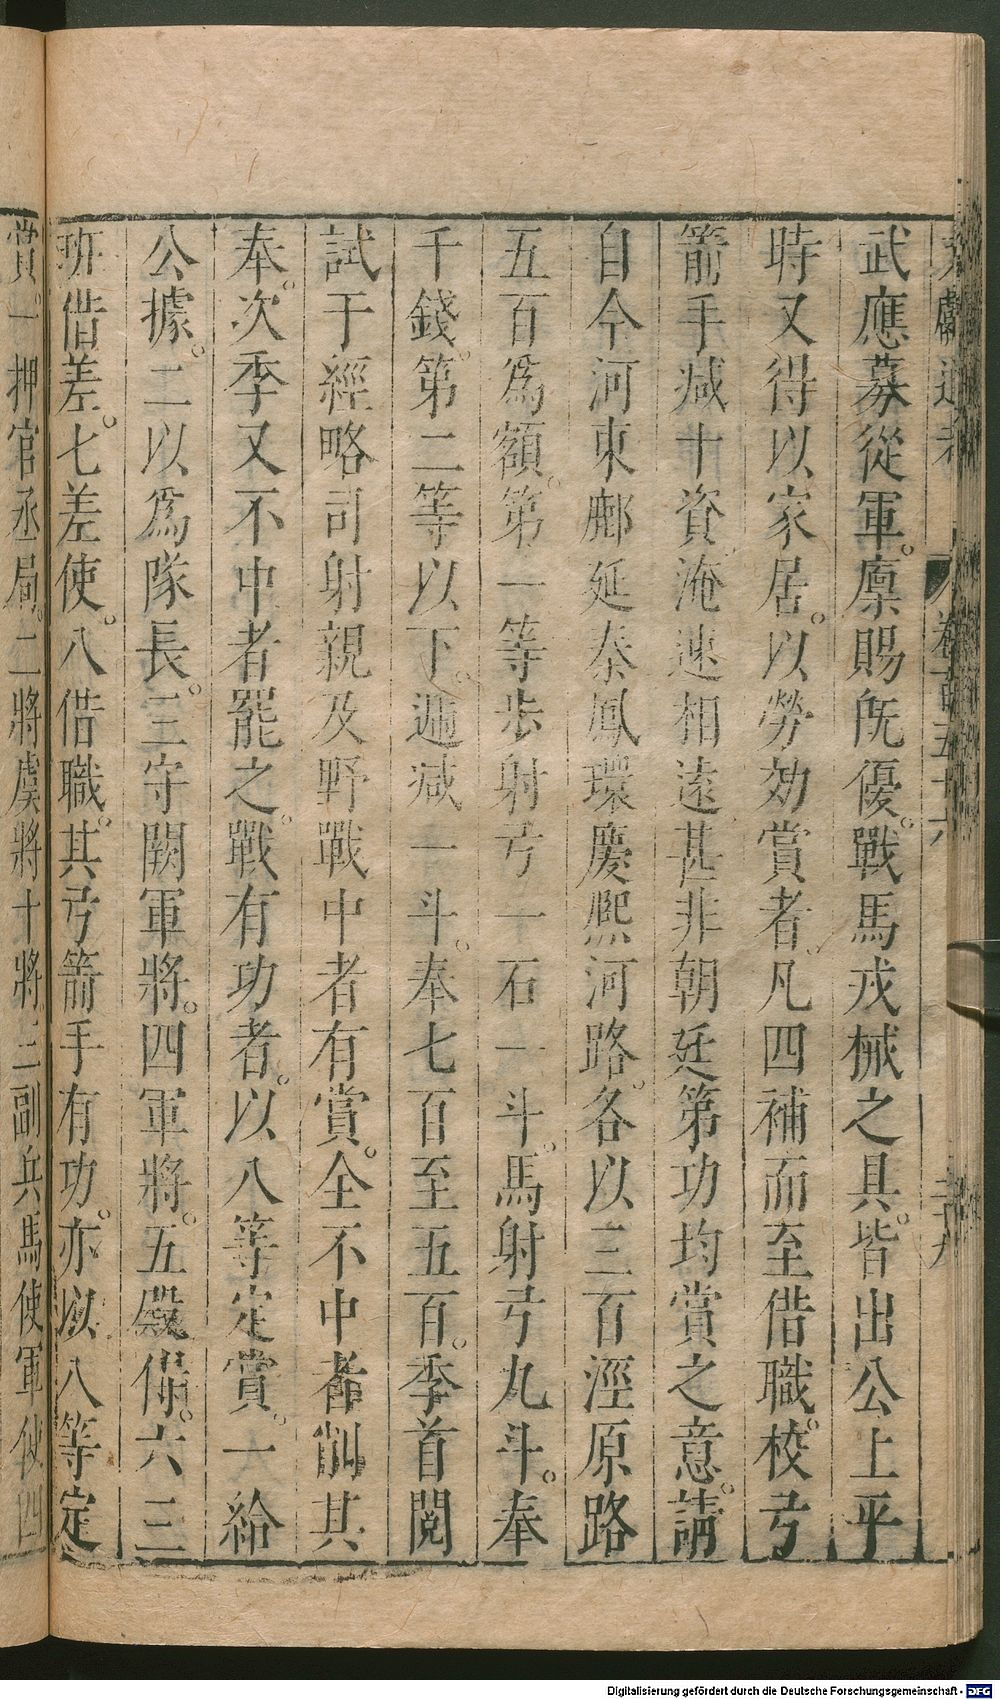 文獻通考 卷一百五十六 三十九
武應募從軍。廪賜旣優。戰馬戎械之具。皆出公上平
時又得以家居。以勞効賞者、凡四補而至借職。校弓
箭手減十資淹速相遠甚非朝廷第功均賞之意。請
自今河東鄜延秦鳳環慶熙河路。各以三百涇原路
五百爲額。第一等步射弓一石一斗。馬射弓九斗。奉
千錢。第二等以下。遞減一斗。奉七百至五百。季首閱
試于經略司射親及野戰中者有賞。全不中者削其
奉。次季又不中者罷之。戰有功者。以八等定賞。一給
公據。二以爲隊長。三守闕軍將。四軍將。五殿侍。六三
班借差。七差使。八借職。其弓箭手有功。亦以八等定
賞。一押官承局。二將虞將十將。三副兵馬使軍使四
Digitalisierung gefördert durch die Deutsche Forschungsgemeinschaft - DFG